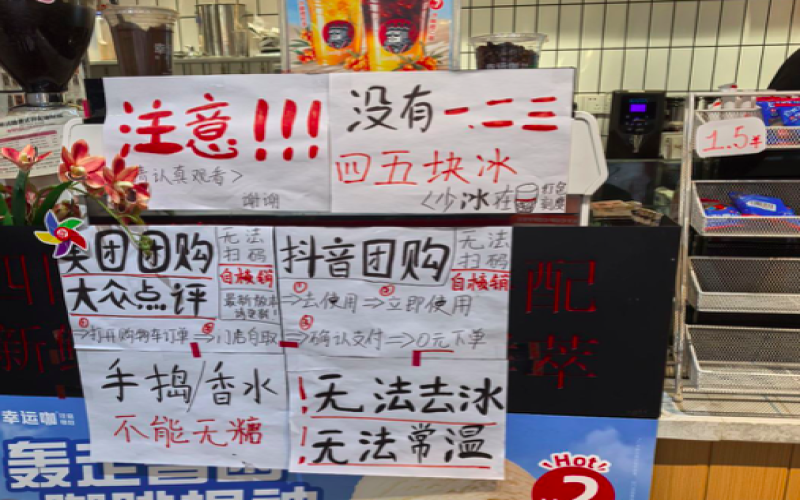 注意!!!
请认真观看>
谢谢
没有一.二三
四五块冰
<少冰在
打包
美团团购
大众点评
无法
扫码
自核销
最新版本
请更新!
①⇒打开购物车订单⇒②门店自取
抖音团购
无法
扫码
自核销
①⇒去使用⇒②立即使用
③⇒确认支付⇒0元下单
手捣/香水
不能无糖
!无法去冰
!无法常温
配
萃
幸运咖
Hot
2
1.5元